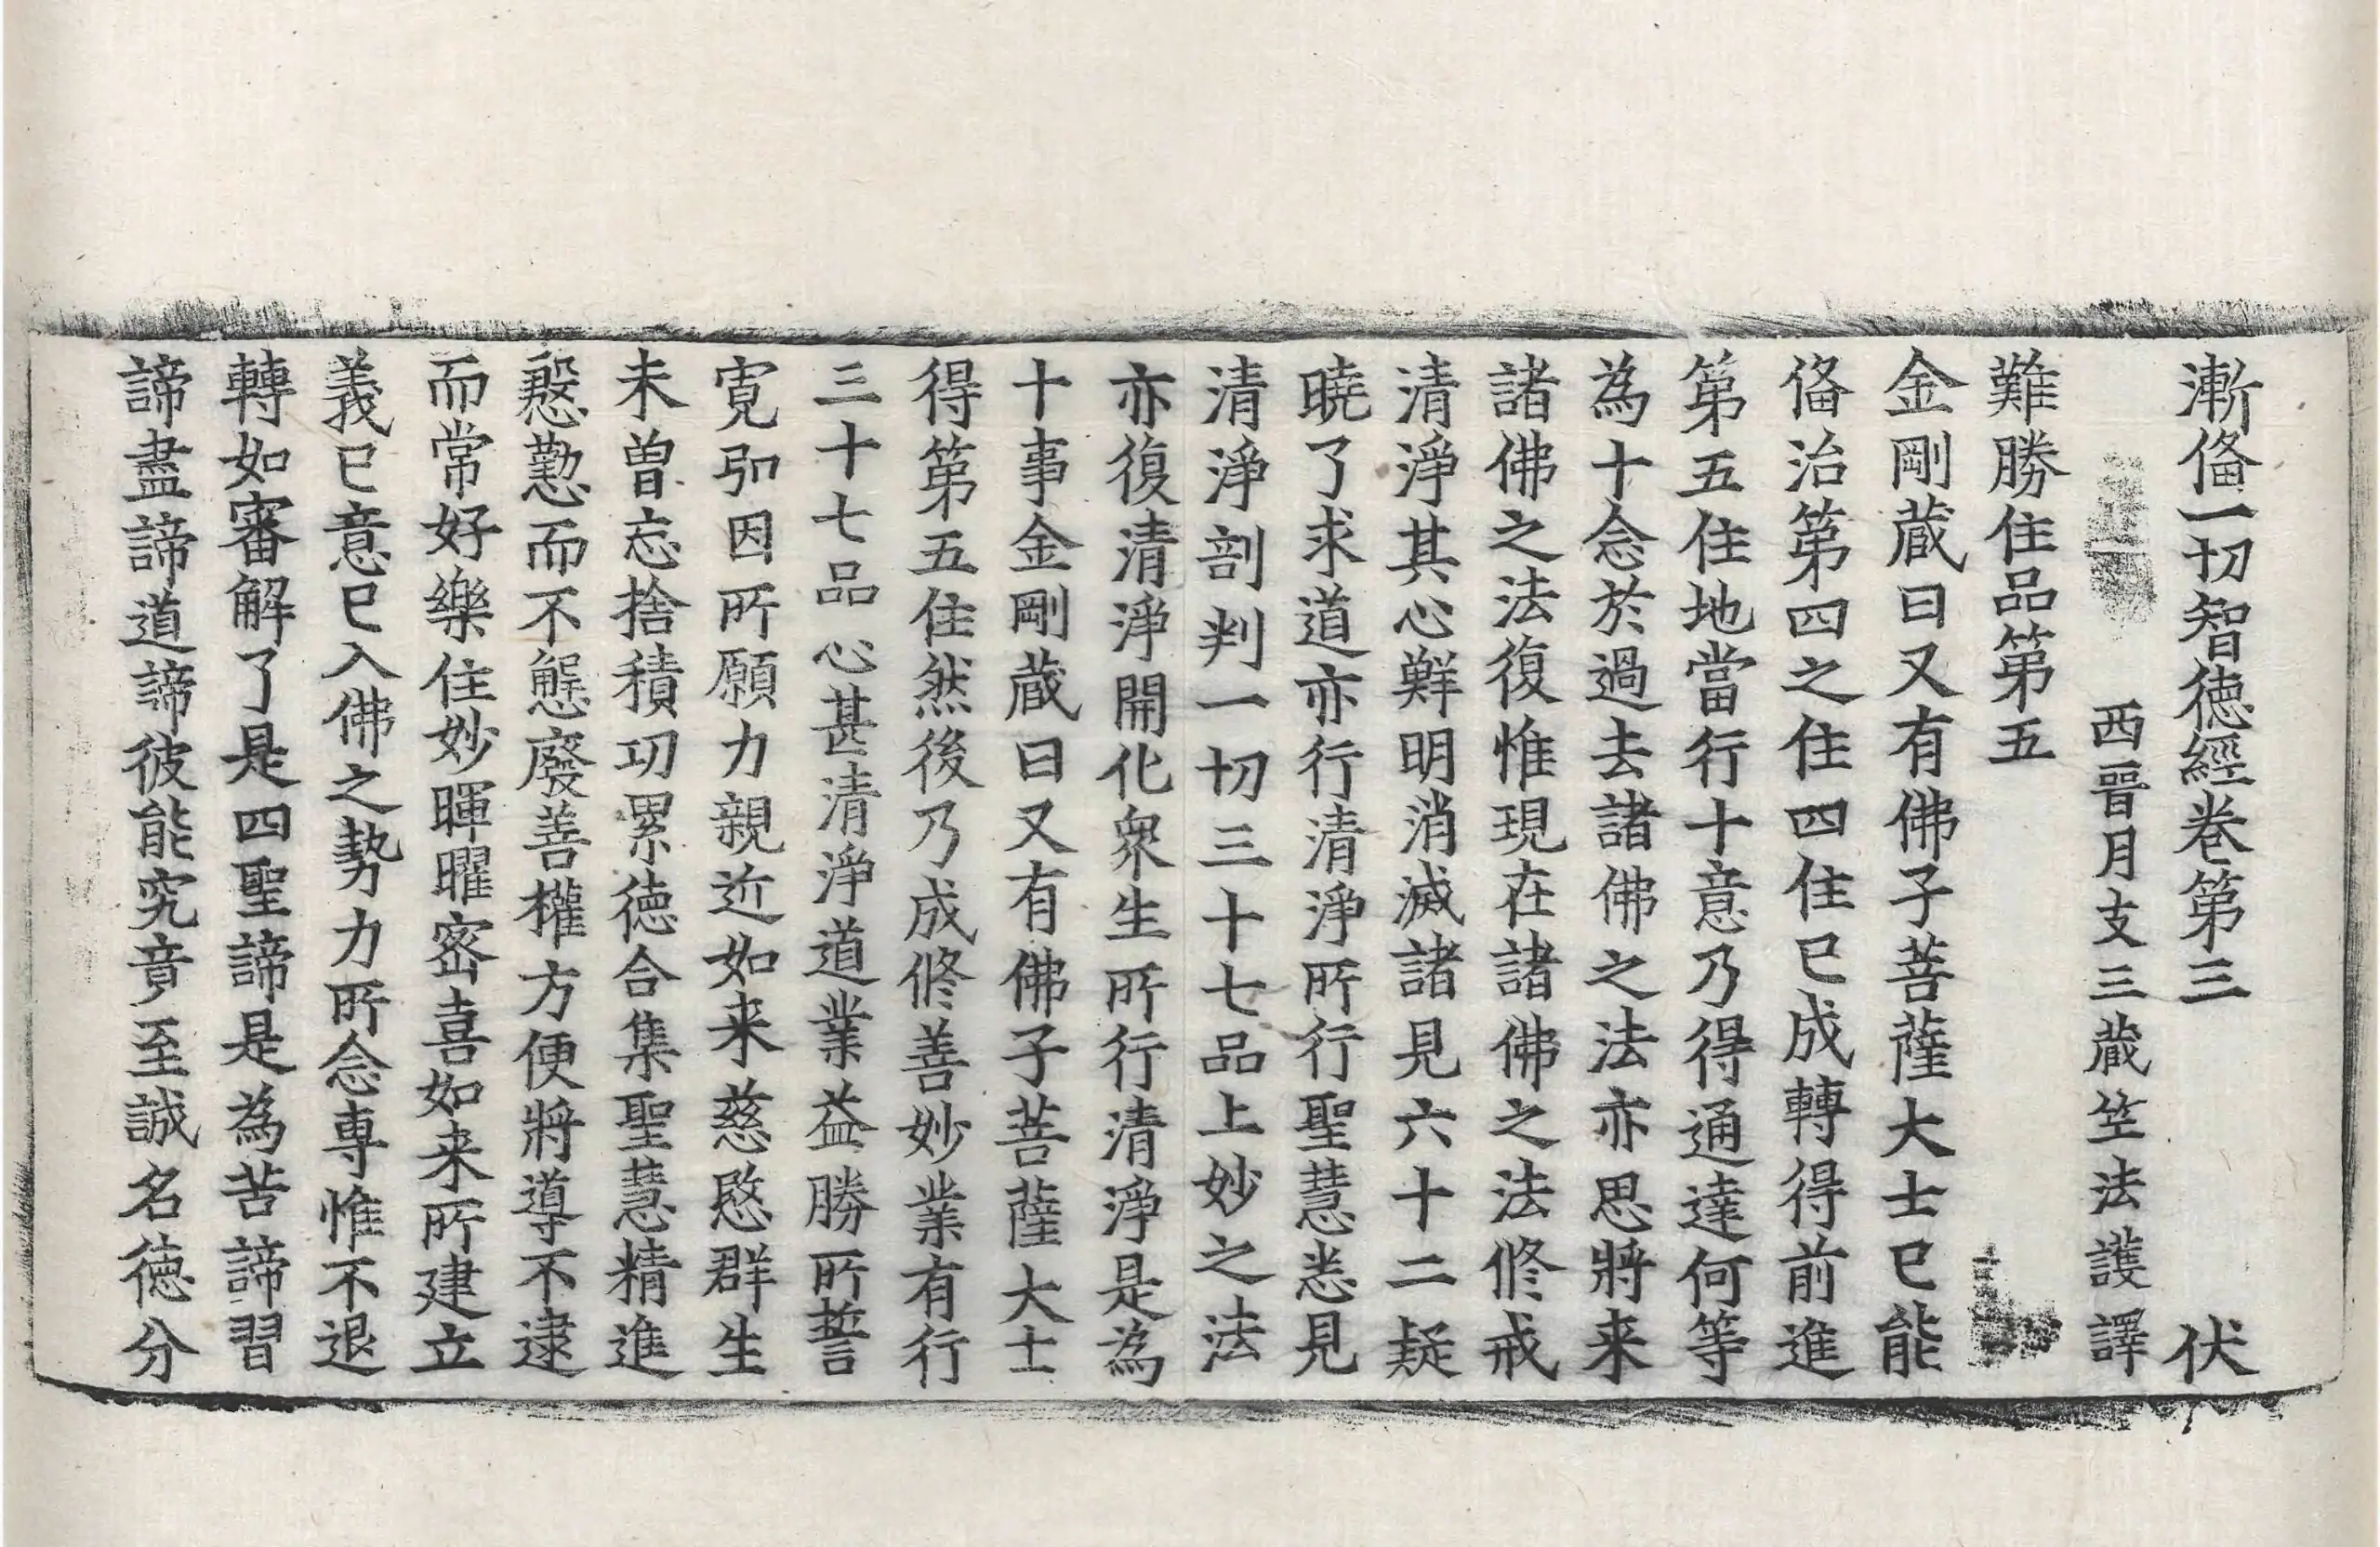 漸俻一切智德經卷第三 伏
西晉月支三蔵竺法護譯
難勝住品第五
金剛蔵曰又有佛子菩薩大士已能
俻治第四之住四住已成轉得前進
第五住地當行十意乃得通達何等
為十念於過去諸佛之法亦思將来
諸佛之法復惟現在諸佛之法修戒
清淨其心鮮明消滅諸見六十二疑
曉了求道亦行清淨所行聖慧悉見
清淨剖判一切三十七品上妙之法
亦復清淨開化衆生所行清淨是為
十事金剛蔵曰又有佛子菩薩大士
得第五住然後乃成修善妙業有行
三十七品心甚清淨道業益勝所誓
寛弘因所願力親近如来慈愍群生
未曽忘捨積功累德合集聖慧精進
慇懃而不懈廢善權方便將導不逮
而常好樂住妙暉曜密喜如来所建立
義已意已入佛之勢力所念專惟不退
轉如審解了是四聖諦是為苦諦習
諦盡諦道諦彼能究竟至誠名德分